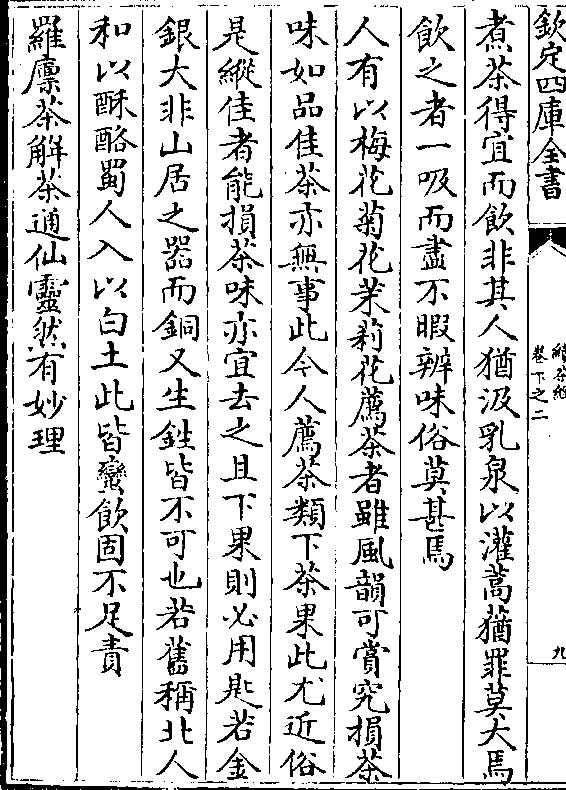 欽定四庫全書
續茶經
卷下之二
九
煮茶得宜而飲非其人猶汲乳泉以灌蒿蕕罪莫大焉
飲之者一吸而盡不暇辨味俗莫甚焉
人有以梅花菊花茉莉花薦茶者雖風韻可賞究損茶
味如品佳茶亦無事此今人薦茶類下茶果此尤近俗
是縱佳者能損茶味亦宜去之且下果則必用匙若金
銀大非山居之器而銅又生鉎皆不可也若舊稱北人
和以酥酪蜀人入以白土此皆蠻飲固不足責
羅廪茶解茶通仙靈然有妙理